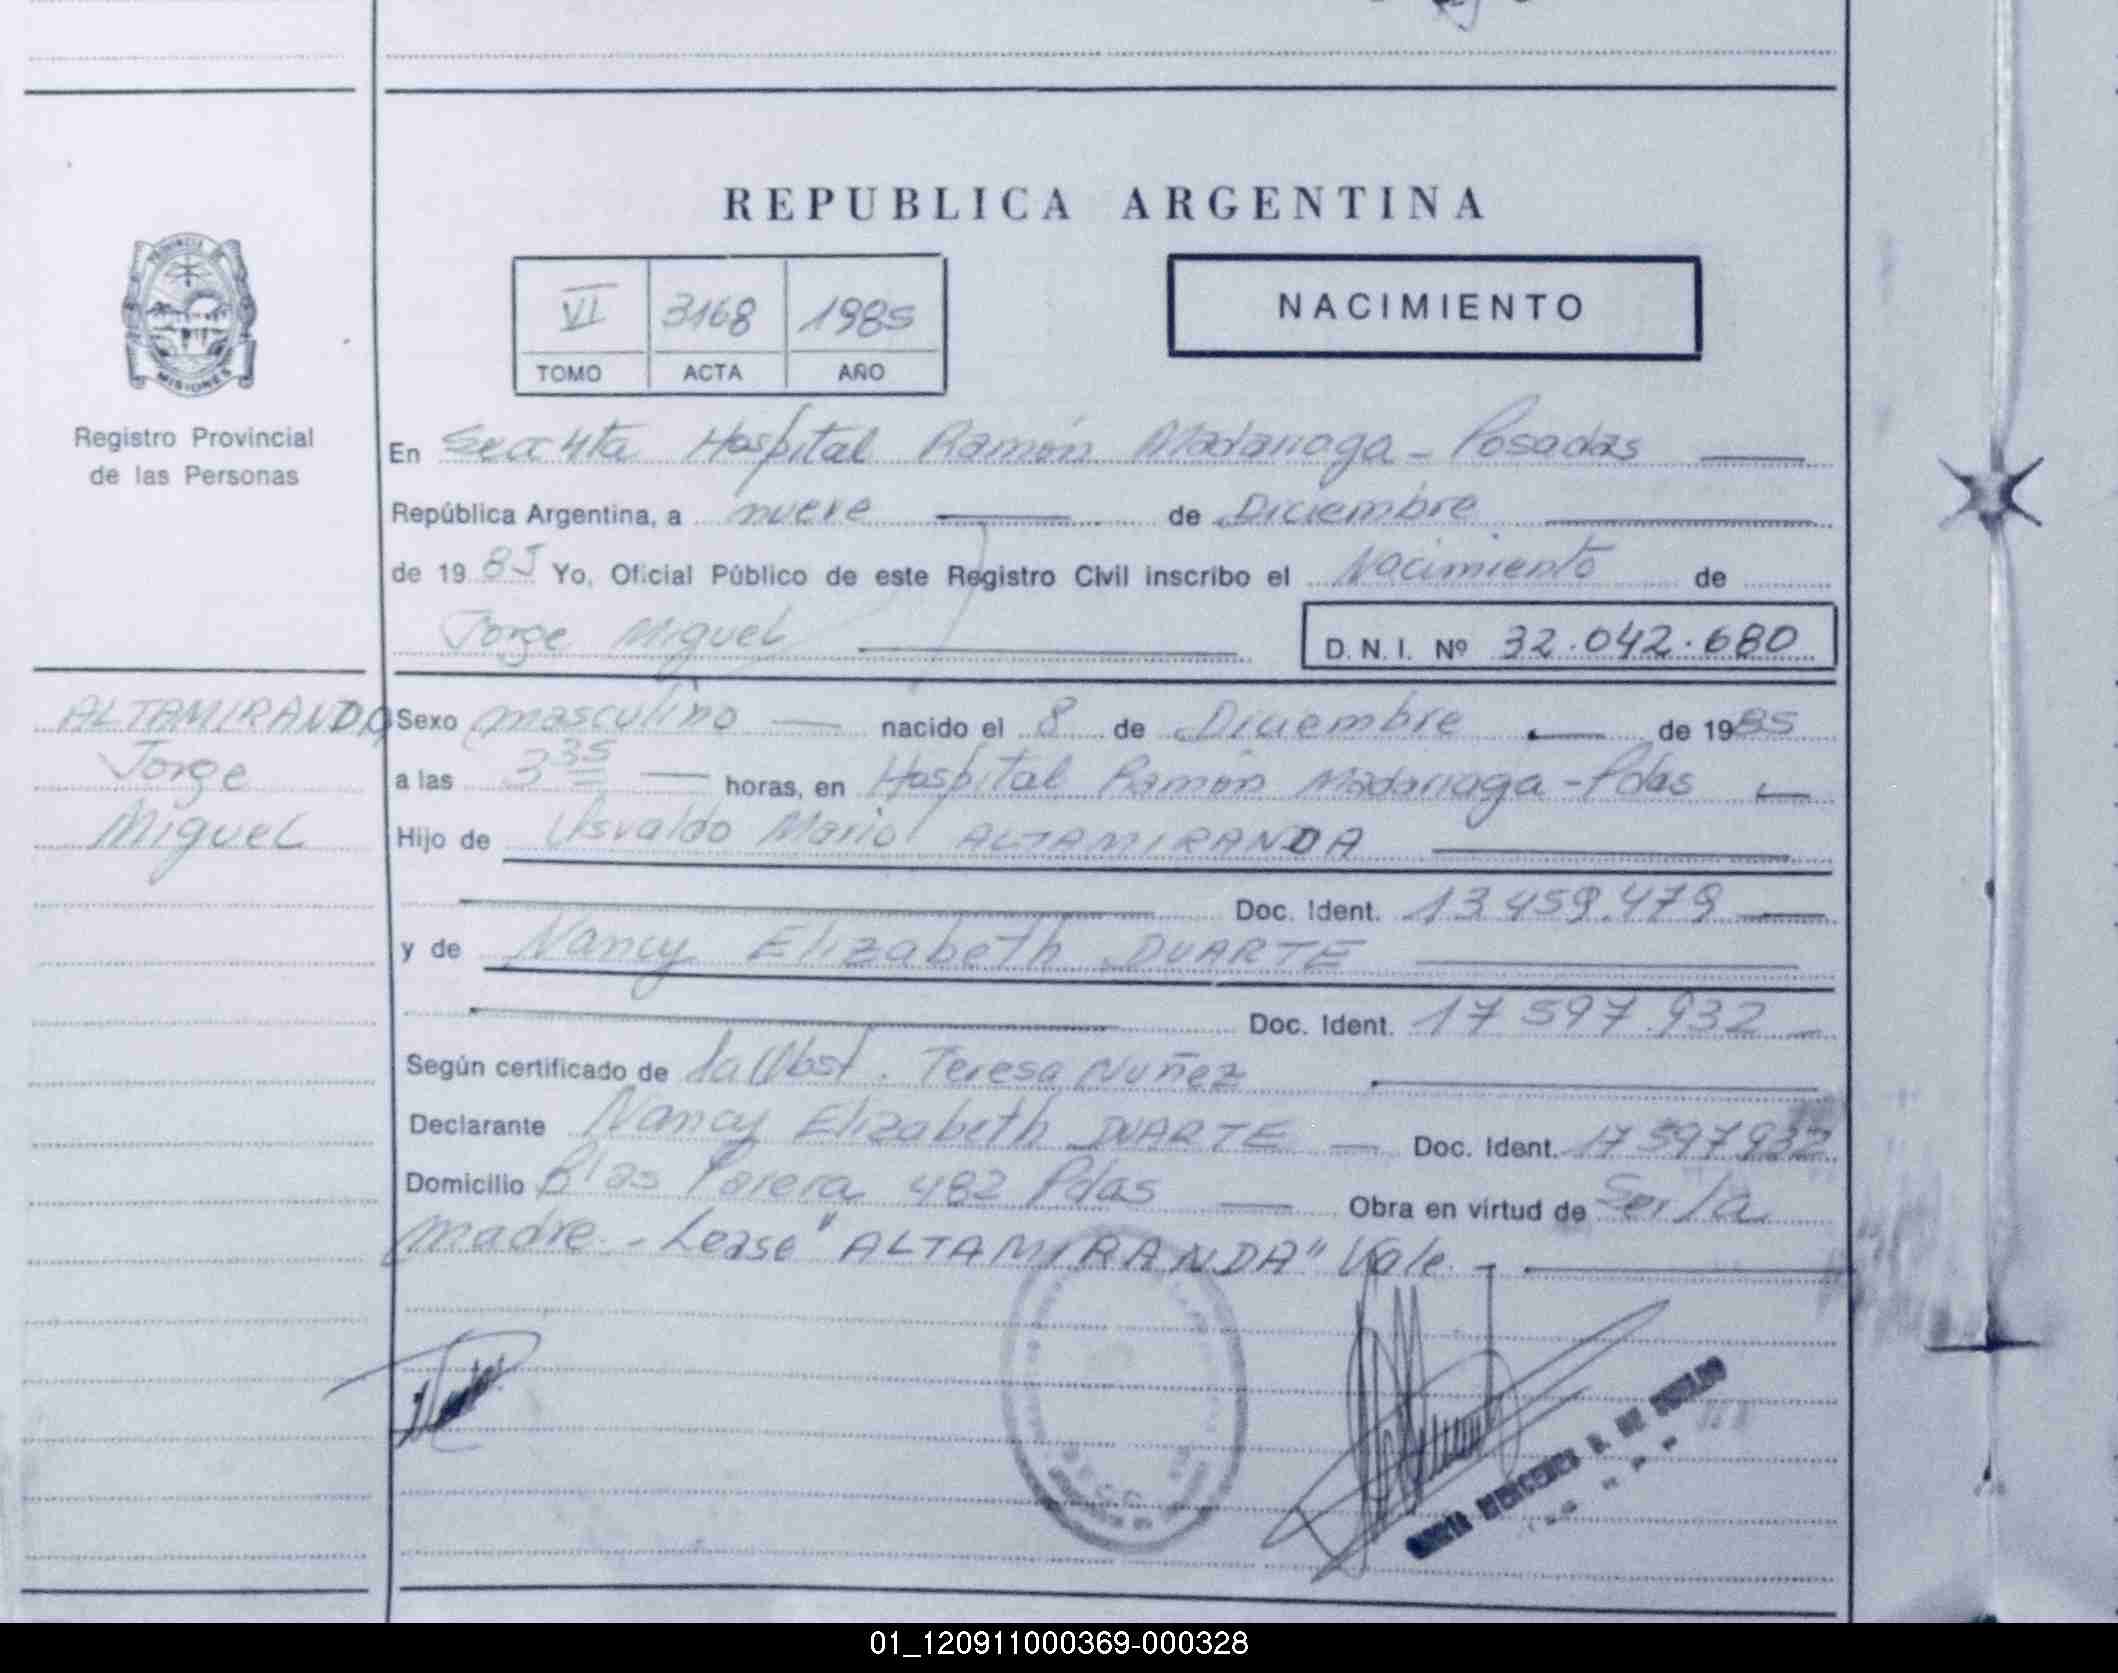 REPUBLICA ARGENTINA
VI 3168 1985
TOMO ACTA AÑO
NACIMIENTO
PROVINCIA DE
MISIONES
Registro Provincial
de las Personas
En Secc 4ta Hospital Ramón Madariaga - Posadas
República Argentina, a nueve de Diciembre
de 1985 Yo, Oficial Público de este Registro Civil inscribo el Nacimiento de
Jorge Miguel D.N.I. Nº 32.042.680
ALTAMIRANDA
Jorge
Miguel
Sexo masculino nacido el 8 de Diciembre de 1985
a las 3 35 horas, en Hospital Ramón Madariaga - Pdas
Hijo de Osvaldo Mario ALTAMIRANDA
Doc. Ident. 13.459.479
y de Nancy Elizabeth DUARTE
Doc. Ident. 17 597.932
Según certificado de la Obst. Teresa Nuñez
Declarante Nancy Elizabeth DUARTE Doc. Ident. 17 597 932
Domicilio Blas Parera 482 Pdas Obra en virtud de Ser la
madre. - Lease "ALTAMIRANDA" Vale. -
01_120911000369-000328